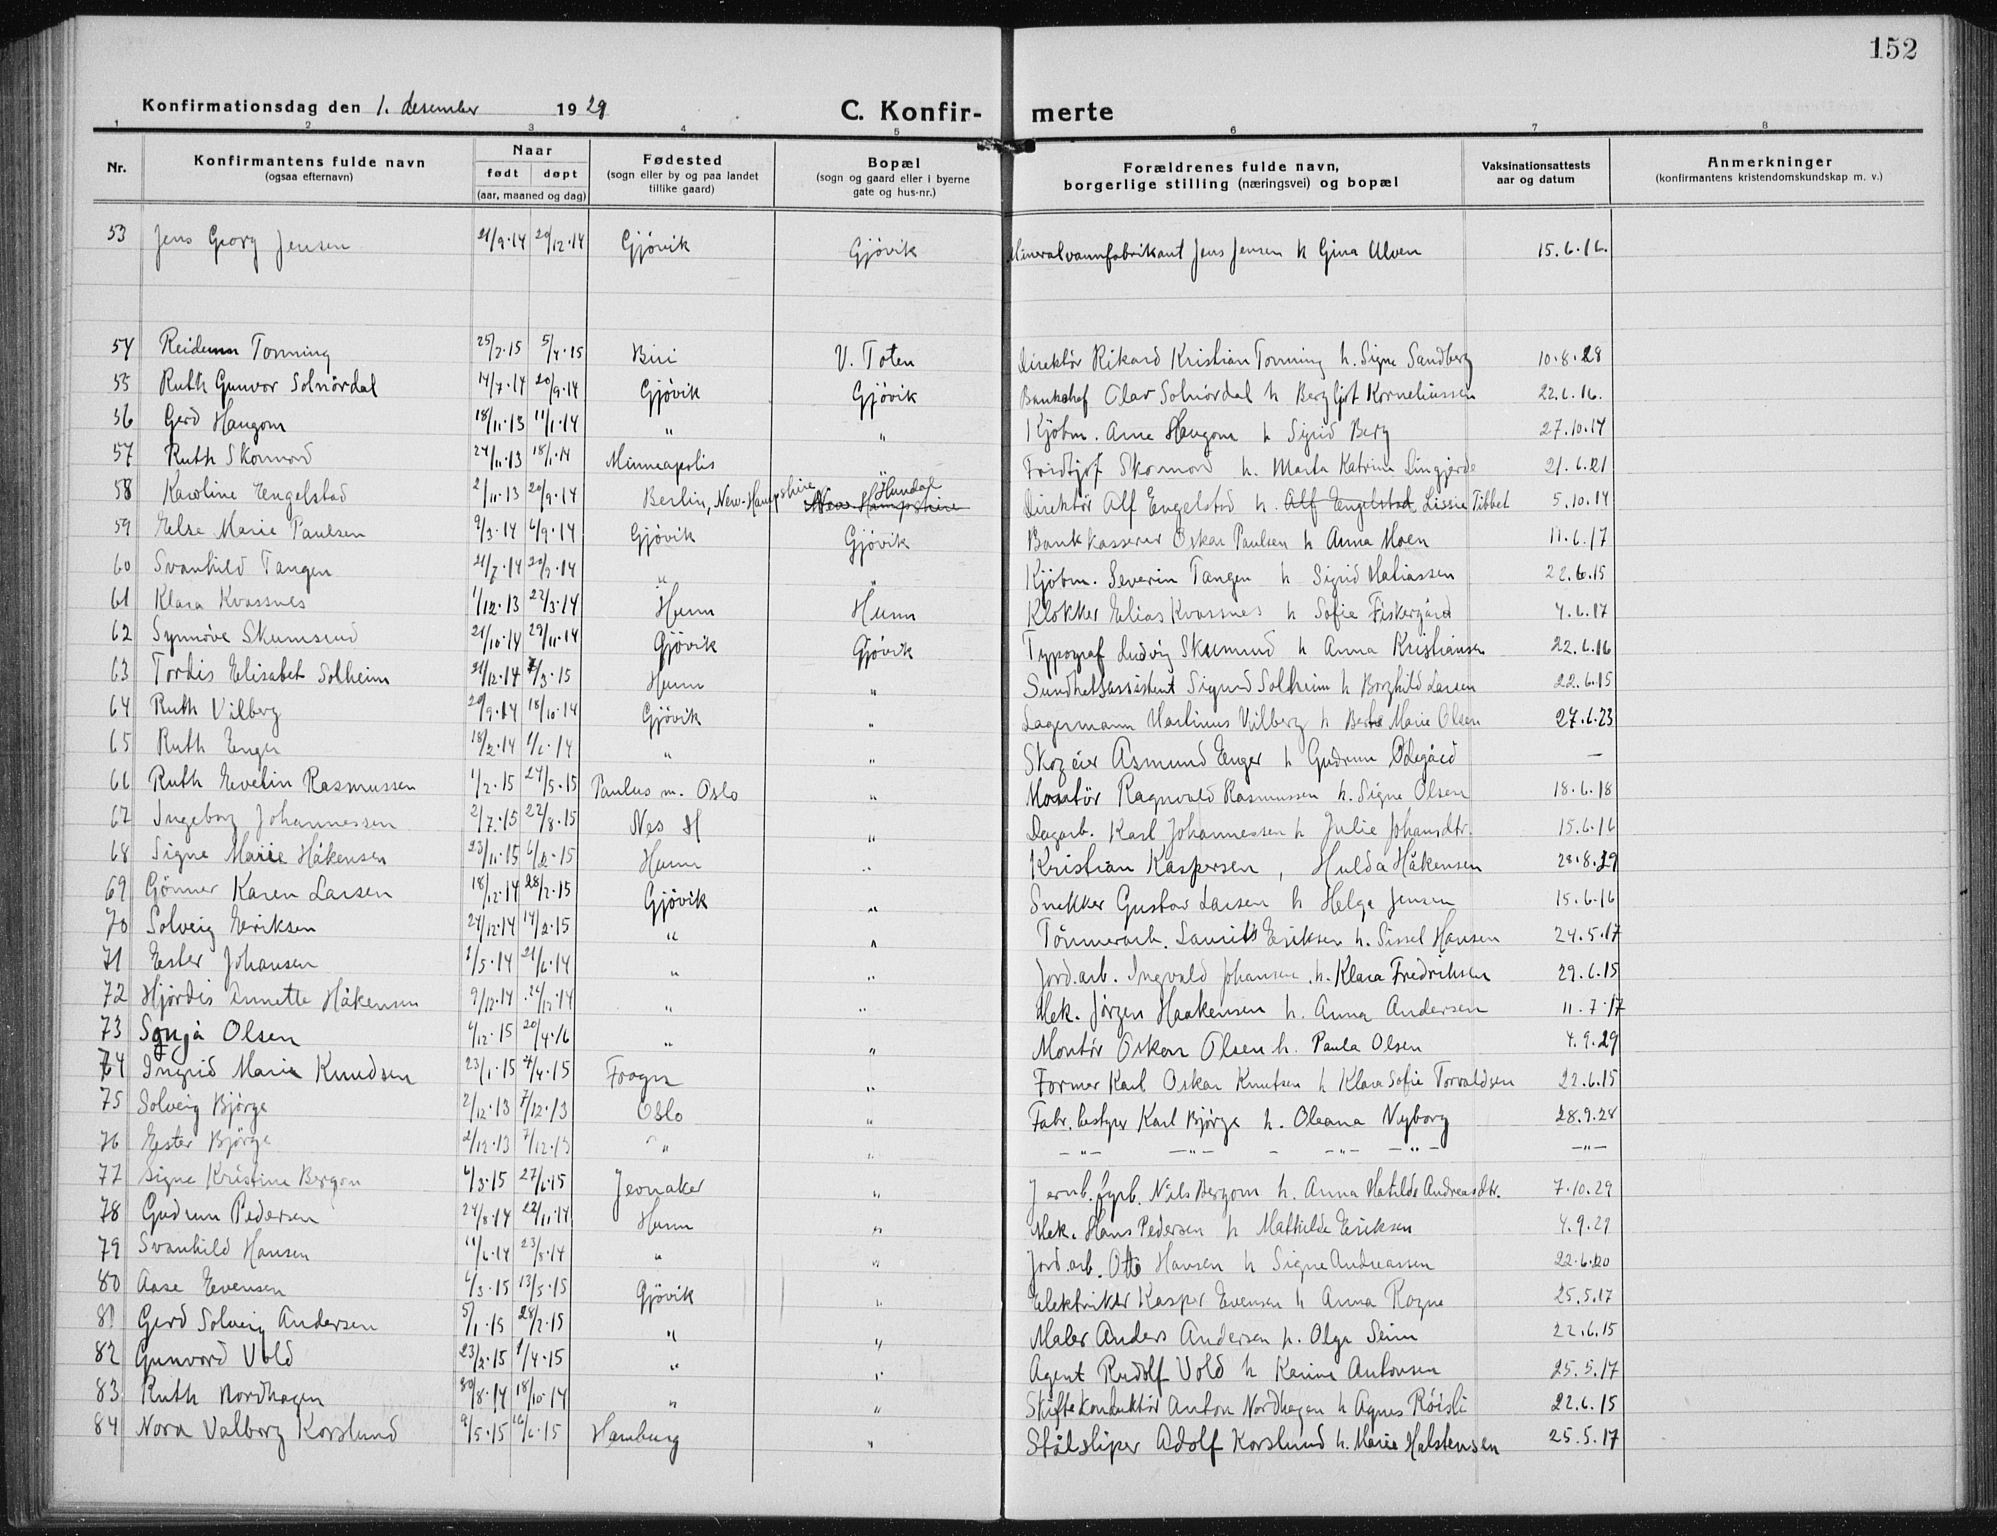 152
Konfirmationsdag den 1. desember 1929 C. Konfirmerte
1 2 3 4 5 6 7 8
Nr. Konfirmantens fulde navn (ogsaa efternavn) Naar født døpt (aar, maaned og dag) Fødested (sogn eller by og paa landet tillike gaard) Bopæl (sogn og gaard eller i byerne gate og hus-nr.) Forældrenes fulde navn, borgerlige stilling (næringsvei) og bopæl Vaksinationsattests aar og datum Anmerkninger (konfirmantens kristendomskundskap m. v.)
53 Jens Georg Jensen 21/9.14 20/12.14 Gjövik Gjövik Mineralvannfabrikant Jens Jensen h Gina Alven 15.6.16.
54 Reidunn Tonning 25/2.15 5/4.15 Biri V. Toten Direktör Rikard Kristian Tonning h. Signe Sandberg 10.8.28
55 Ruth Gunvor Solnördal 14/7.14 20/9.14 Gjövik Gjövik Banksjef Olav Solnördal h Bergljot Korneliussen 22.6.16.
56 Gerd Haugom 18/11.13 11/1.14 " " Kjöbm. Arne Haugom h Sigrid Berg 27.10.14
57 Ruth Skonnord 24/11.13 18/1.14 Minneapolis " Fridtjof Skonnord h. Marta Katrine Lingjerde 21.6.21
58 Karoline Engelstad 2/11.13 20/9.14 Berlin, New-Hampshire New-Hampshire Hundal Direktör Alf Engelstad h. Alf Engelstad Lissie Tibbet 5.10.14
59 Else Marie Paulsen 9/3.14 6/9.14 Gjövik Gjövik Bankkasserer Oskar Paulsen h Anna Moen 11.6.17
60 Svanhild Tangen 21/7.14 20/9.14 " " Kjöbm. Severin Tangen h Sigrid Matiassen 22.6.15
61 Klara Kvassnes 1/12.13 22/3.14 Hunn Hunn Klokker Elias Kvassnes h Sofie Fiskergård 4.6.17
62 Synnöve Skumsrud 21/10.14 29/11.14 Gjövik Gjövik Typograf Ludvig Skumsrud h Anna Kristiansen 22.6.16
63 Tordis Elisabet Solheim 21/12.14 7/3.15 Hunn " Sundhetsassistent Sigurd Solheim h Borghild Larsen 22.6.15
64 Ruth Vilberg 20/9.14 18/10.14 Gjövik " Lagermann Martinus Vilberg h Berte Marie Olsen 27.6.23
65 Ruth Enger 18/2.14 1/6.14 " " Skogeier Asmund Enger h Gudrun Ødegård —
66 Ruth Evelin Rasmussen 1/2.15 24/5.15 Paulus m. Oslo " Montör Ragnvald Rasmussen h. Signe Olsen 18.6.18
67 Ingeborg Johannessen 2/7.15 22/8.15 Nes H " Dagarb. Karl Johannessen h Julie Johansdtr. 15.6.16
68 Signe Marie Håkensen 23/11.15 6/2.15 Hunn " Kristian Kaspersen, Hulda Håkensen 28.8.29
69 Gönner Karen Larsen 18/12.14 28/2.15 Gjövik " Snekker Gustav Larsen h Helga Jensen 15.6.16
70 Solveig Eriksen 24/12.14 14/2.15 " " Tömmerarb. Laurits Eriksen h. Sissel Hansen 24.5.17
71 Ester Johansen 1/5.14 21/6.14 " " Jord.arb. Ingvald Johansen h. Klara Fredriksen 29.6.15
72 Hjördis Annette Håkensen 9/12.14 26/12.14 " " Mek. Jörgen Haakensen h. Anna Andersen 11.7.17
73 Sonja Olsen 4/12.15 20/4.16 " " Montör Oskar Olsen h. Paula Olsen 4.9.29
74 Ingrid Marie Knudsen 23/1.15 4/4.15 Frogn " Former Karl Oskar Knutsen h Klara Sofie Torvaldsen 22.6.15
75 Solveig Bjørge 2/12.13 7/12.13 Oslo " Fabr. bestyrer Karl Bjørge h. Oleana Nyborg 28.9.28
76 Ester Björge 2/12.13 7/12.13 " " – " – – " – – – " – – " – – " –
77 Signe Kristine Bergom 6/3.15 27/6.15 Jevnaker " Jernb. fyrb. Nils Bergom h. Anna Matilde Andreasdtr. 7.10.29
78 Gudrun Pedersen 24/8.14 22/11.14 Hunn " Mek. Hans Pedersen h Mathilde Eriksen 4.9.29
79 Svanhild Hansen 11/6.14 23/8.14 " " Jord.arb. Otto Hansen h Signe Andreassen 22.6.20
80 Aase Evensen 6/3.15 13/5.15 Gjövik " Elektriker Kasper Evensen h Anna Rogne 25.5.17
81 Gerd Solveig Andersen 5/1.15 28/2.15 " " Maler Anders Andersen h. Olga Seim 22.6.15
82 Gunvord Vold 23/2.15 1/4.15 " " Agent Rudolf Vold h Karine Antonsen 25.5.17
83 Ruth Nordhagen 30/8.14 18/10.14 " " Skiftekonduktör Anton Nordhagen h Agnes Röisli 22.6.15
84 Nora Valborg Korslund 9/5.15 16/6.15 Hamburg " Stålsliper Adolf Korslund h. Marie Halstensen 25.5.17